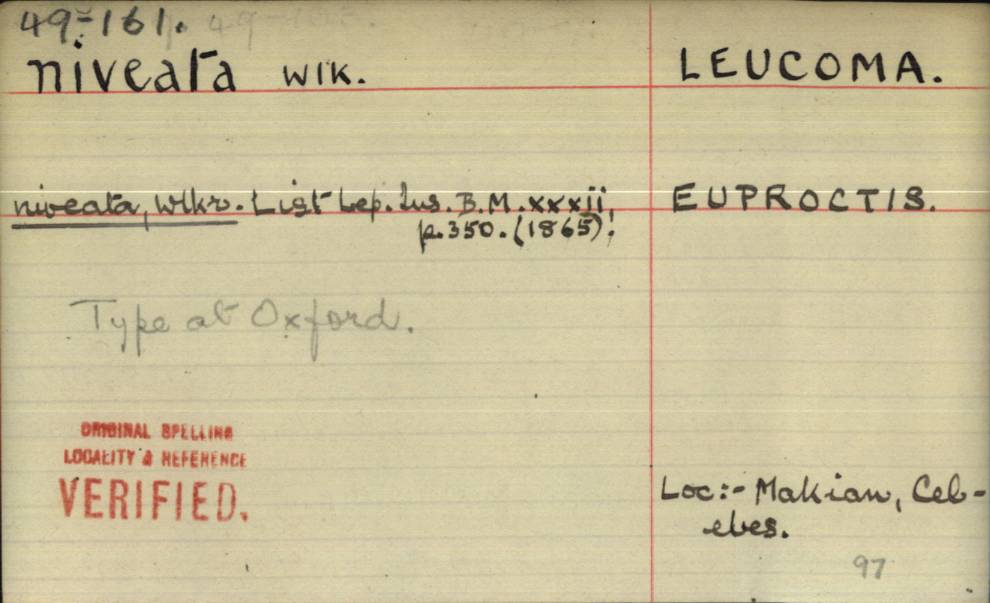 49-161.
niveata wlk. LEUCOMA.
niveata, Wlkr. List Lep. Ins. B.M. xxxii, EUPROCTIS.
p.350. (1865).
Type at Oxford.
ORIGINAL SPELLING
LOCALITY & REFERENCE
VERIFIED.
Loc:- Makian, Cel-
ebes.
97